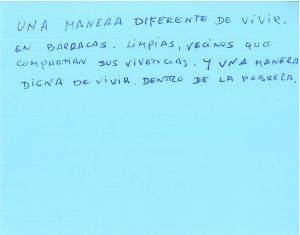 UNA MANERA DIFERENTE DE VIVIR.
EN BARRACAS. LIMPIAS, VECINOS QUE
COMPARTIAN SUS VIVENCIAS. Y UNA MANERA
DIGNA DE VIVIR. DENTRO DE LA POBREZA.